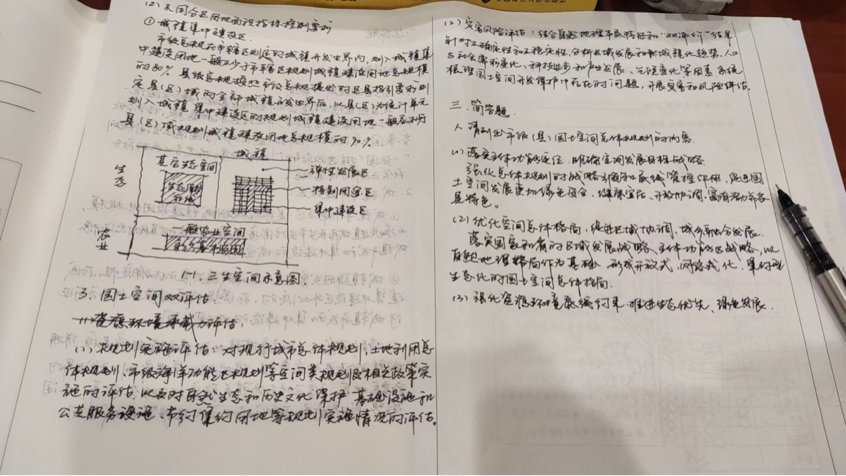 (2) 不同分区用地面积指标控制要求
① 城镇集中建设区.
市级总规在市辖区划定的城镇开发边界内, 划入城镇集
中建设用地一般不少于市辖区规划城镇建设用地总规模
的80%. 县级总规按照市级总规提出的区县指引要求划
定县(区)域的全部城镇开发边界后, 以县(区)为统计单元
划入城镇集中建设区的规划城镇建设用地一般不少于
县(区)域规划城镇建设用地总规模的90%.
城镇
其它生态空间
生态
弹性发展区
特别用途区
集中建设区
一般农业空间
农业
三生空间示意图.
3. 国土空间双评估
资源环境承载力评估:
(1) 规划实施评估: 对现行城市总体规划, 土地利用总
体规划, 市级海洋功能区规划等空间类规划及相关政策实
施的评估, 以及对自然生态和历史文化保护 基础设施和
公共服务设施, 节约集约用地等规划实施情况的评估.
(2) 灾害风险评估: 结合自然地理本底特征和"双评价"结果
针对不确定性和不稳定性, 分析区域发展和城镇化趋势. 人口
与社会需求变化、科技进步和产业发展、气候变化等因素 系统
梳理国土空间开发保护中存在的问题, 开展灾害和风险评估.
三. 简答题.
1. 请列出市级(县)国土空间总体规划的内容.
(1) 落实主体功能定位, 明确空间发展目标战略
强化总体规划的战略引领和底线管控作用, 促进国
土空间发展更加绿色安全, 健康宜居、开放协调、富有活力并各
具特色.
(2) 优化空间总体格局, 促进区域协调、城乡融合发展.
落实国家和省的区域发展战略、主体功能区战略, 以
自然地理格局为基础, 形成开放式、网络化、集约型
生态化的国土空间总体格局.
(3) 强化资源环境底线约束, 推进生态优先、绿色发展.